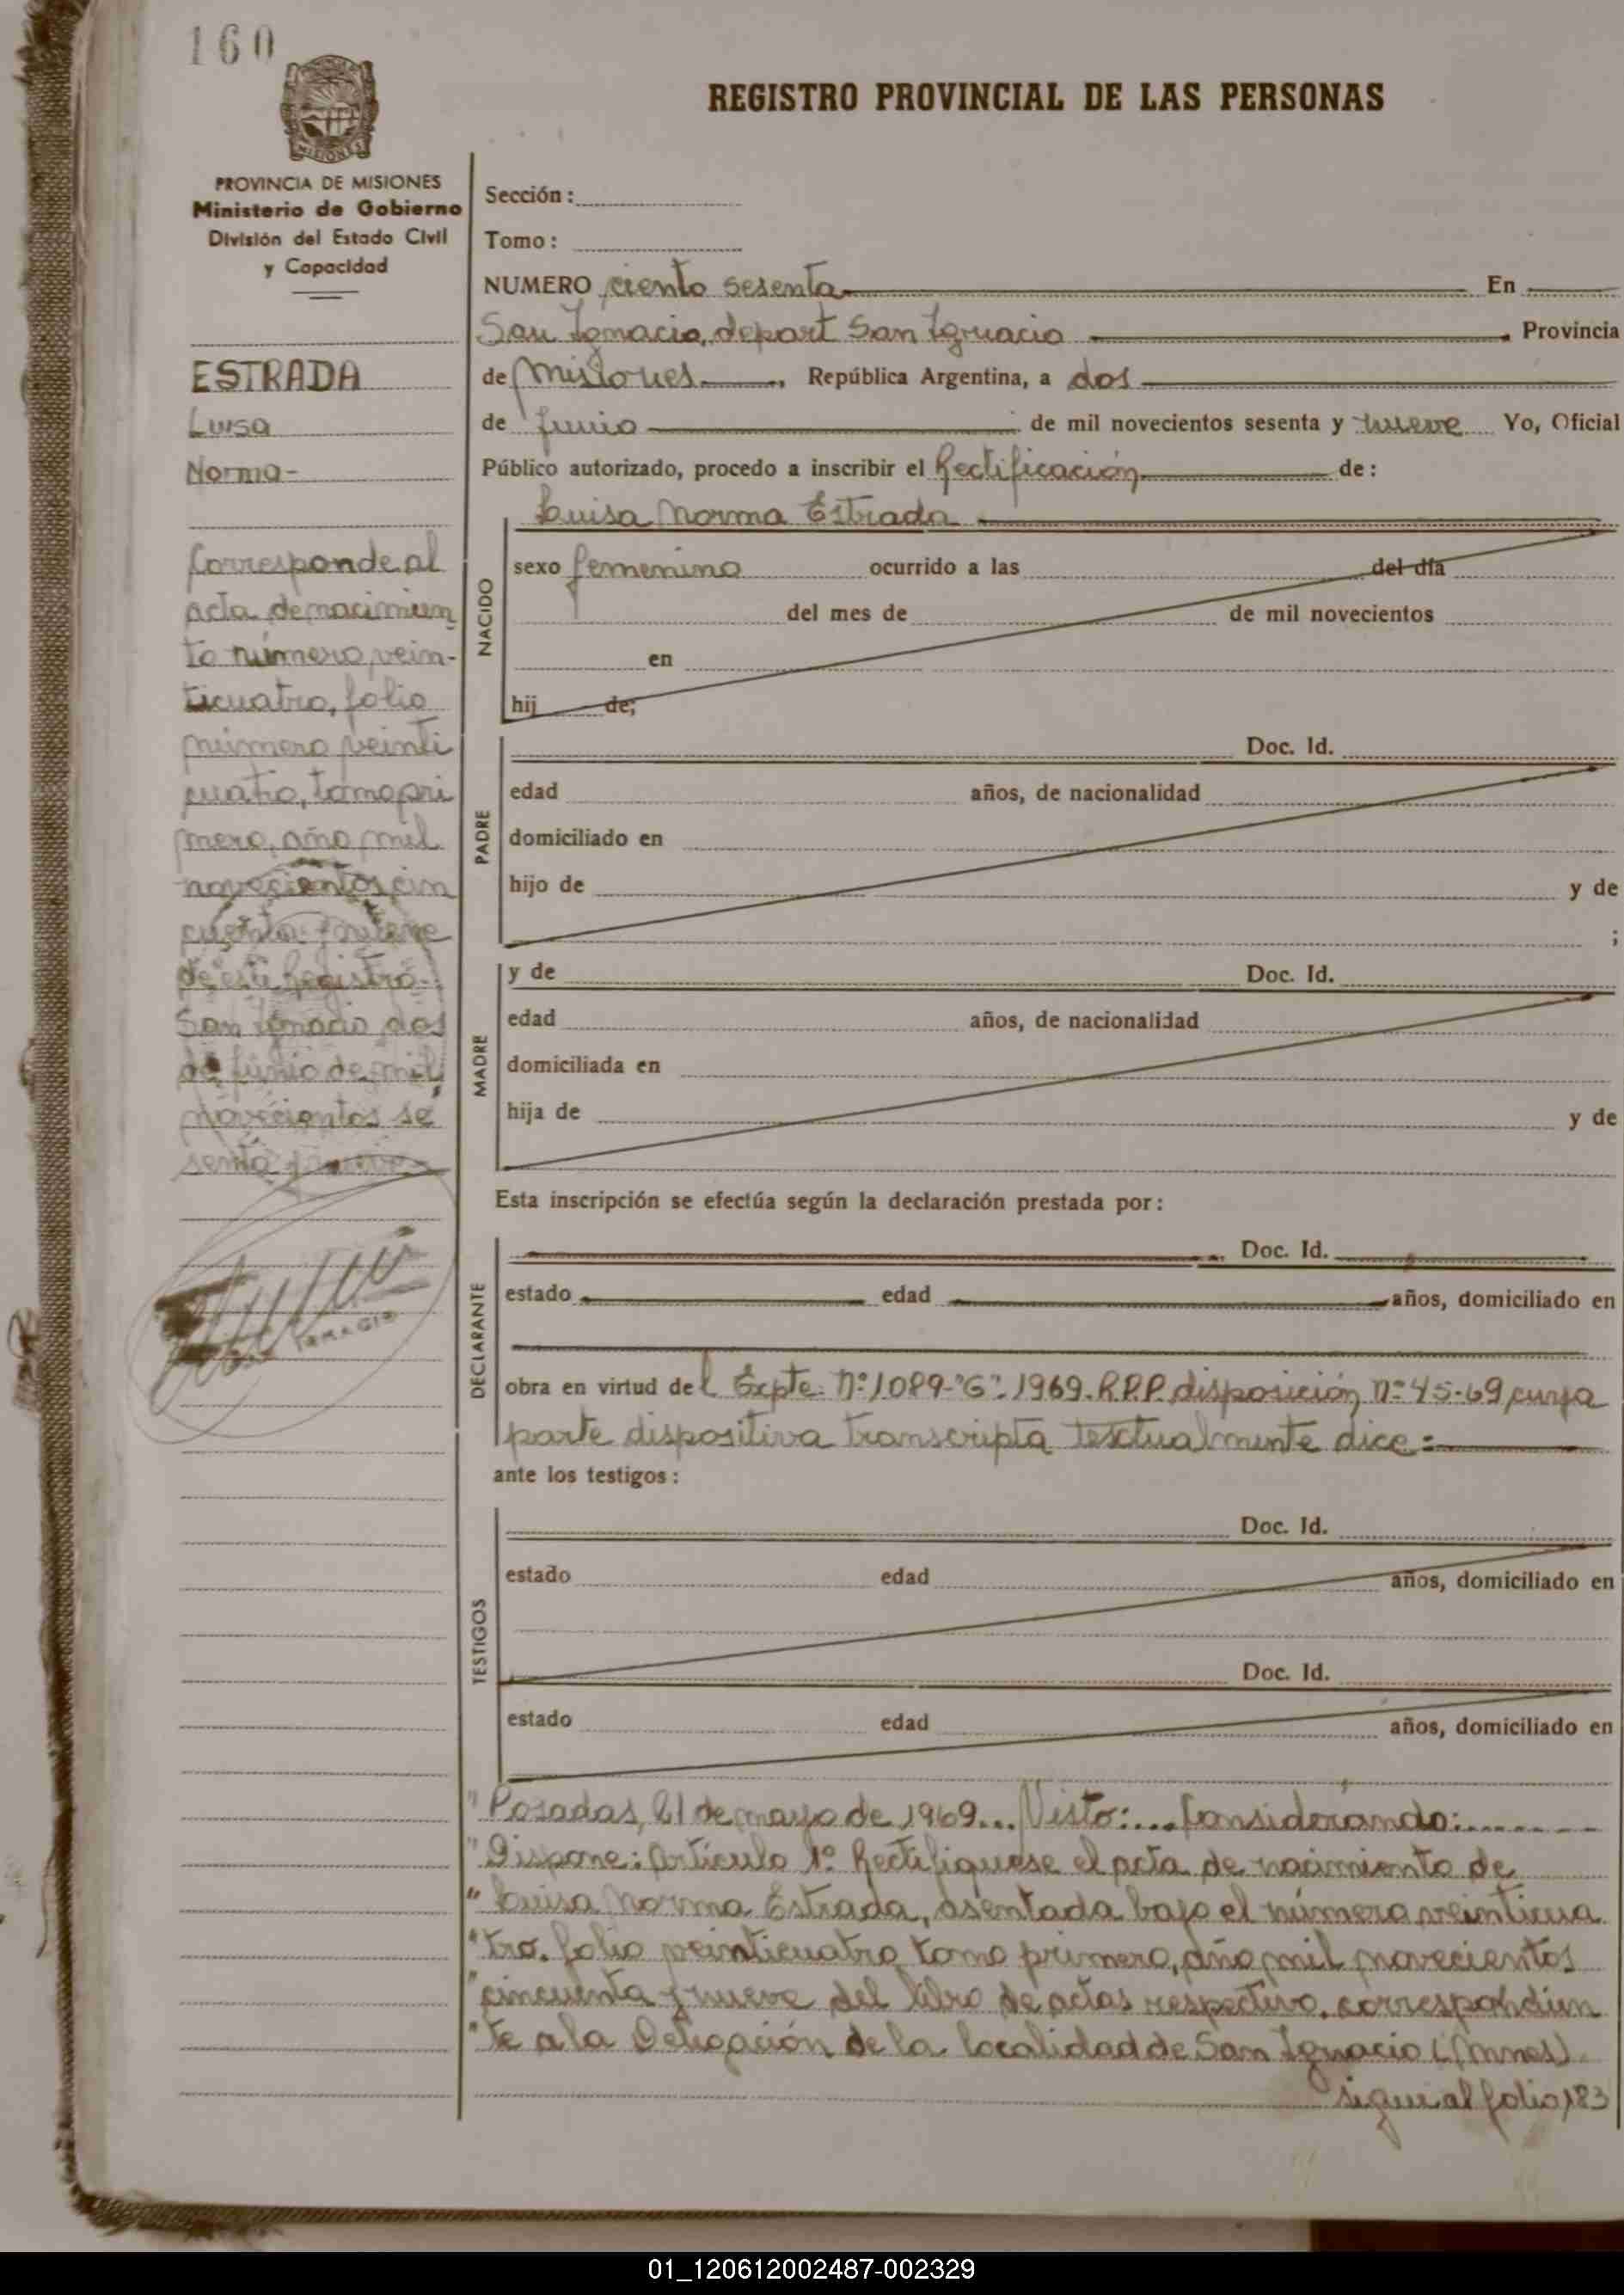 160
MISIONES
PROVINCIA DE MISIONES
Ministerio de Gobierno
División del Estado Civil
y Capacidad
ESTRADA
Luisa
Norma-
Corresponde al
acta de nacimien
to número vein-
ticuatro, folio
número veinti
cuatro, tomo pri
mero, año mil
novecientos cin
cuenta y nueve
de este Registro.
San Ignacio dos
de junio de mil
novecientos se
senta y nueve
REGISTRO PROVINCIAL DE LAS PERSONAS
Sección:
Tomo:
NUMERO ciento sesenta En
San Ignacio, depart San Ignacio Provincia
de Misiones, República Argentina, a dos
de junio de mil novecientos sesenta y nueve Yo, Oficial
Público autorizado, procedo a inscribir el Rectificación de:
Luisa Norma Estrada
NACIDO
sexo femenino ocurrido a las del día
del mes de de mil novecientos
en
hij de;
PADRE
Doc. Id.
edad años, de nacionalidad
domiciliado en
hijo de y de
;
MADRE
y de Doc. Id.
edad años, de nacionalidad
domiciliada en
hija de y de
Esta inscripción se efectúa según la declaración prestada por:
DECLARANTE
Doc. Id.
estado edad años, domiciliado en
obra en virtud del Expte. Nº 1089-"G"-1969-R.P.P. disposición nº 45-69 cuya
parte dispositiva transcripta textualmente dice:
ante los testigos:
TESTIGOS
Doc. Id.
estado edad años, domiciliado en
Doc. Id.
estado edad años, domiciliado en
"Posadas, 21 de mayo de 1969... Visto:.... Considerando:.......
"Dispone: Artículo 1º Rectifíquese el acta de nacimiento de
"Luisa Norma Estrada, asentada bajo el número veinticua
"tro. folio veinticuatro tomo primero, año mil novecientos
"cincuenta y nueve del libro de actas respectivo. correspondien
"te a la Delegación de la localidad de San Ignacio (Mnes).
sigue al folio 183
01_120612002487-002329